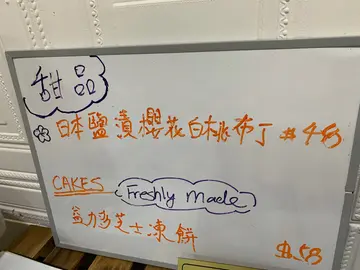 甜品
日本鹽漬櫻花白桃布丁 $48
CAKES Freshly Made
益力多芝士凍餅 $58